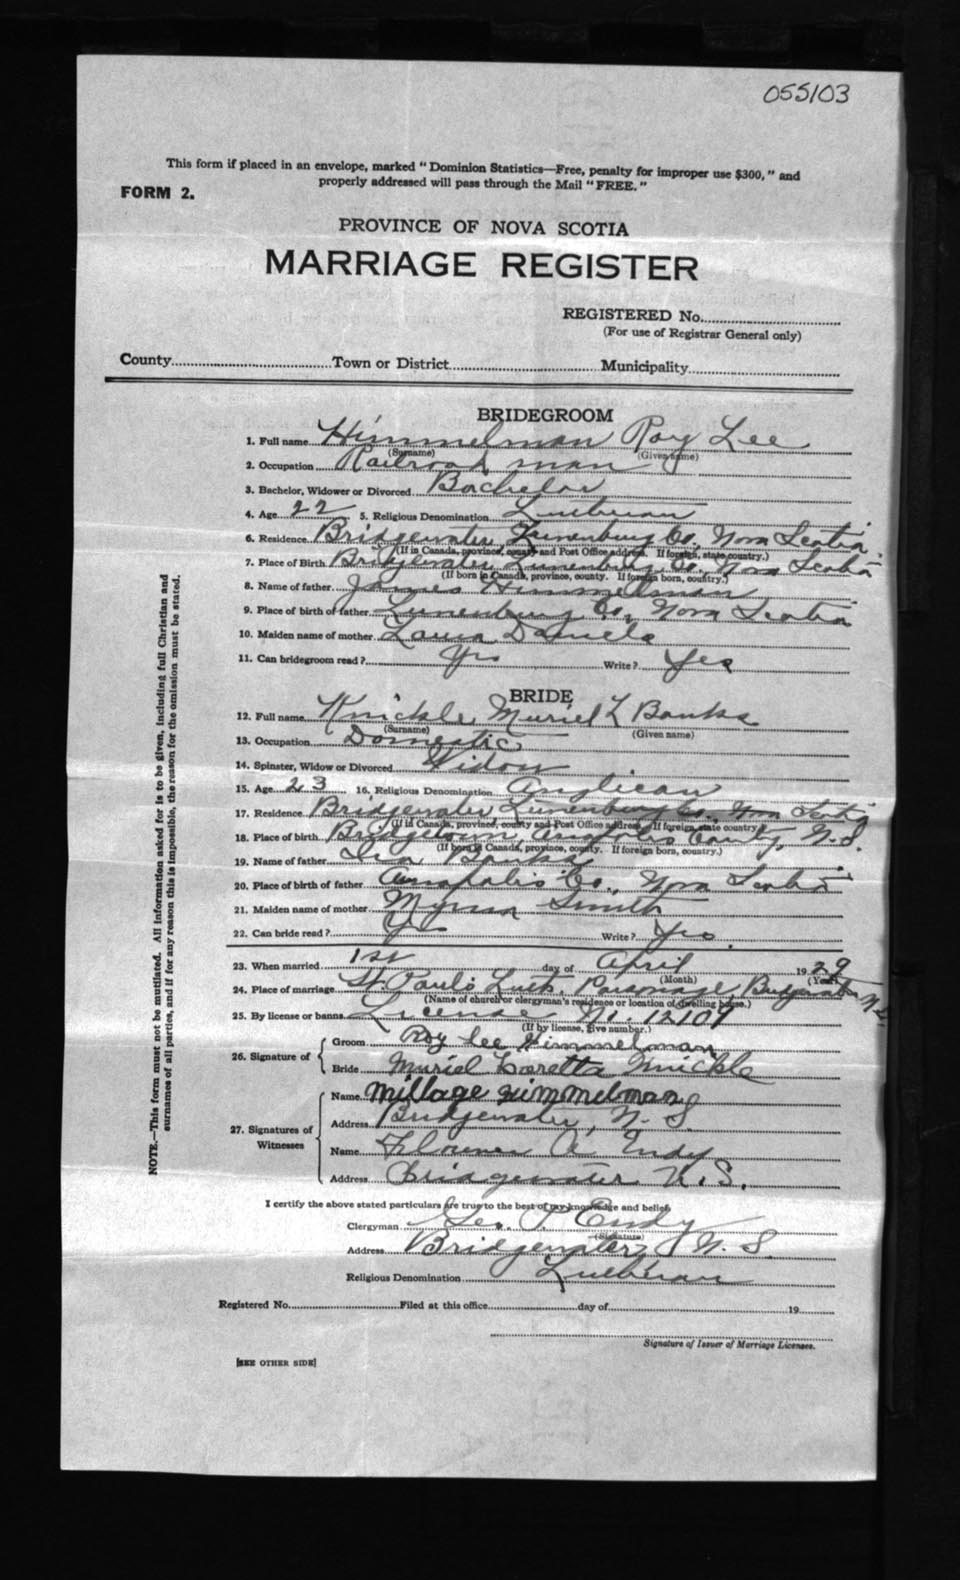 055103
This form if placed in an envelope, marked "Dominion Statistics—Free, penalty for improper use $300," and
properly addressed will pass through the Mail "FREE."
FORM 2.
PROVINCE OF NOVA SCOTIA
MARRIAGE REGISTER
REGISTERED No.
(For use of Registrar General only)
County Town or District Municipality
BRIDEGROOM
1. Full name Himmelman Roy Lee
(Surname) (Given name)
2. Occupation Railroad man
3. Bachelor, Widower or Divorced Bachelor
4. Age 22 5. Religious Denomination Lutheran
6. Residence Bridgewater Lunenburg Co, Nova Scotia
(If in Canada, province, county and Post Office address. If foreign, state country.)
7. Place of Birth Bridgewater Lunenburg Co, Nova Scotia
(If born in Canada, province, county. If foreign born, country.)
8. Name of father James Himmelman
9. Place of birth of father Lunenburg Co, Nova Scotia
10. Maiden name of mother Laura Daniels
11. Can bridegroom read? Yes Write? Yes
BRIDE
12. Full name Knickle, Muriel L Banks
(Surname) (Given name)
13. Occupation Domestic
14. Spinster, Widow or Divorced Widow
15. Age 23 16. Religious Denomination Anglican
17. Residence Bridgewater, Lunenburg Co. Nova Scotia
(If in Canada, province, county and Post Office address. If foreign state country)
18. Place of birth Bridgetown, Annapolis County, N.S.
(If born in Canada, province, county. If foreign born, country.)
19. Name of father Ira Banks
20. Place of birth of father Annapolis Co., Nova Scotia
21. Maiden name of mother Smith
22. Can bride read? Yes Write? Yes.
23. When married 1st day of April 1929
(Month) (Year)
24. Place of marriage St. Paul's Luth. Parsonage, Bridgewater N.S.
(Name of church or clergyman's residence or location of dwelling house.)
25. By license or banns License No. 12109
(If by license, give number.)
26. Signature of
Groom Roy Lee Himmelman
Bride Muriel Loretta Knickle
27. Signatures of Witnesses
Name Millage Himmelman
Address Bridgewater, N. S.
Name Florence A Endy
Address Bridgewater N.S.
I certify the above stated particulars are true to the best of my knowledge and belief.
Clergyman Geo. P. Endy
(Signature)
Address Bridgewater, N. S.
Religious Denomination Lutheran
Registered No. Filed at this office day of 19
Signature of Issuer of Marriage Licenses.
[SEE OTHER SIDE]
NOTE.—This form must not be mutilated. All information asked for is to be given, including full Christian and
surnames of all parties, and if for any reason this is impossible, the reason for the omission must be stated.